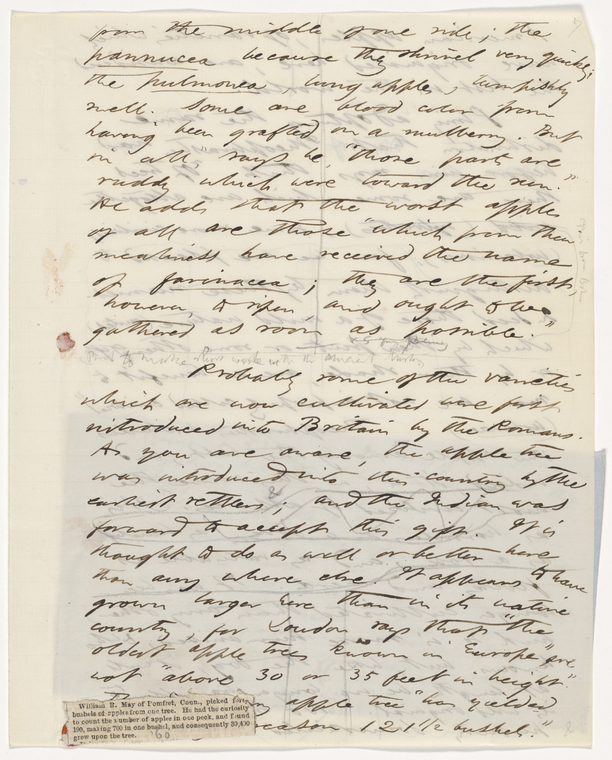 from the middle of one side; the
pannucea because they shrivel very quickly;
the pulmonea, lung apples, lumpishly
swell. Some are blood color from
having been grafted on a mulberry. But
in all," says he, "those parts are
ruddy which were toward the sun."
He adds that the worst apples
of all are those "which from their
mealiness have received the name
of farinacea; they are the first,
however, to ripen and ought to be
gathered as soon as possible."
Probably some of the varieties
which are now cultivated were first
introduced into Britain by the Romans.
As you are aware, the apple tree
was introduced into this country by the
earliest settlers; and the Indian was
forward to accept this gift. It is
thought to do as well or better here
than any where else. It appears to have
grown larger here than in its native
country, for Loudon says that "the
oldest apple trees known in Europe" are
not "above 30 or 35 feet in height"
apple tree "has yielded
season 121 1/2 bushels."
William R. May of Pomfret, Conn., picked forty
bushels of apples from one tree. He had the curiosity
to count the number of apples in one peck, and found
190, making 760 in one bushel, and consequently 30,400
grew upon the tree.